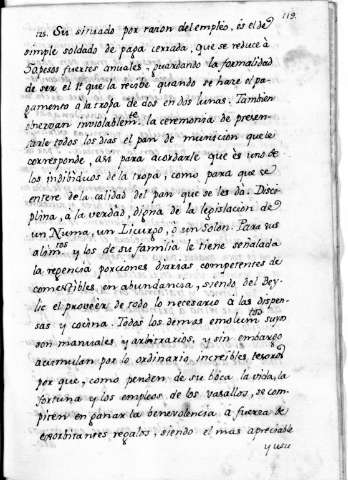 119.
125. Su situado por razon del empléo, és el de
simple soldado de paga cerrada, que se reduce à
50 pesos fuertes anuales, guardando la formalidad
de ser el 1º que la recibe quando se haze el pa-
gamento à la tropa de dos en dos lunas. Tambien
observan inviolablemte la ceremonia de presen-
tarle todos los dias el pan de municion que le
corresponde, asi para acordarle que ès uno de
los indibiduos de la tropa, como para que se
entere de la calidad del pan que se les da. Disci-
plina, à la verdad, digna de la legislacion de
un Numa, un Licurgo, ò un Solon. Para sus
alimtos y los de su familia le tiene señalada
la regencia porciones diarias competentes de
comestibles en abundancia, siendo del Bey-
lic el proveèr de todo lo necesario à las dispen-
sas y cocina. Todos los demas emolumtos suyos
son manuales y arbitrarios, y sin embargo
acumulan por lo ordinario increibles tesoros
por que, como penden de su bòca la vida, la
fortuna y los empleos de los vasallos, se com-
piten en ganar la benevolencia a fuerza de
exorbitantes regalos, siendo el mas apreciable
y usu